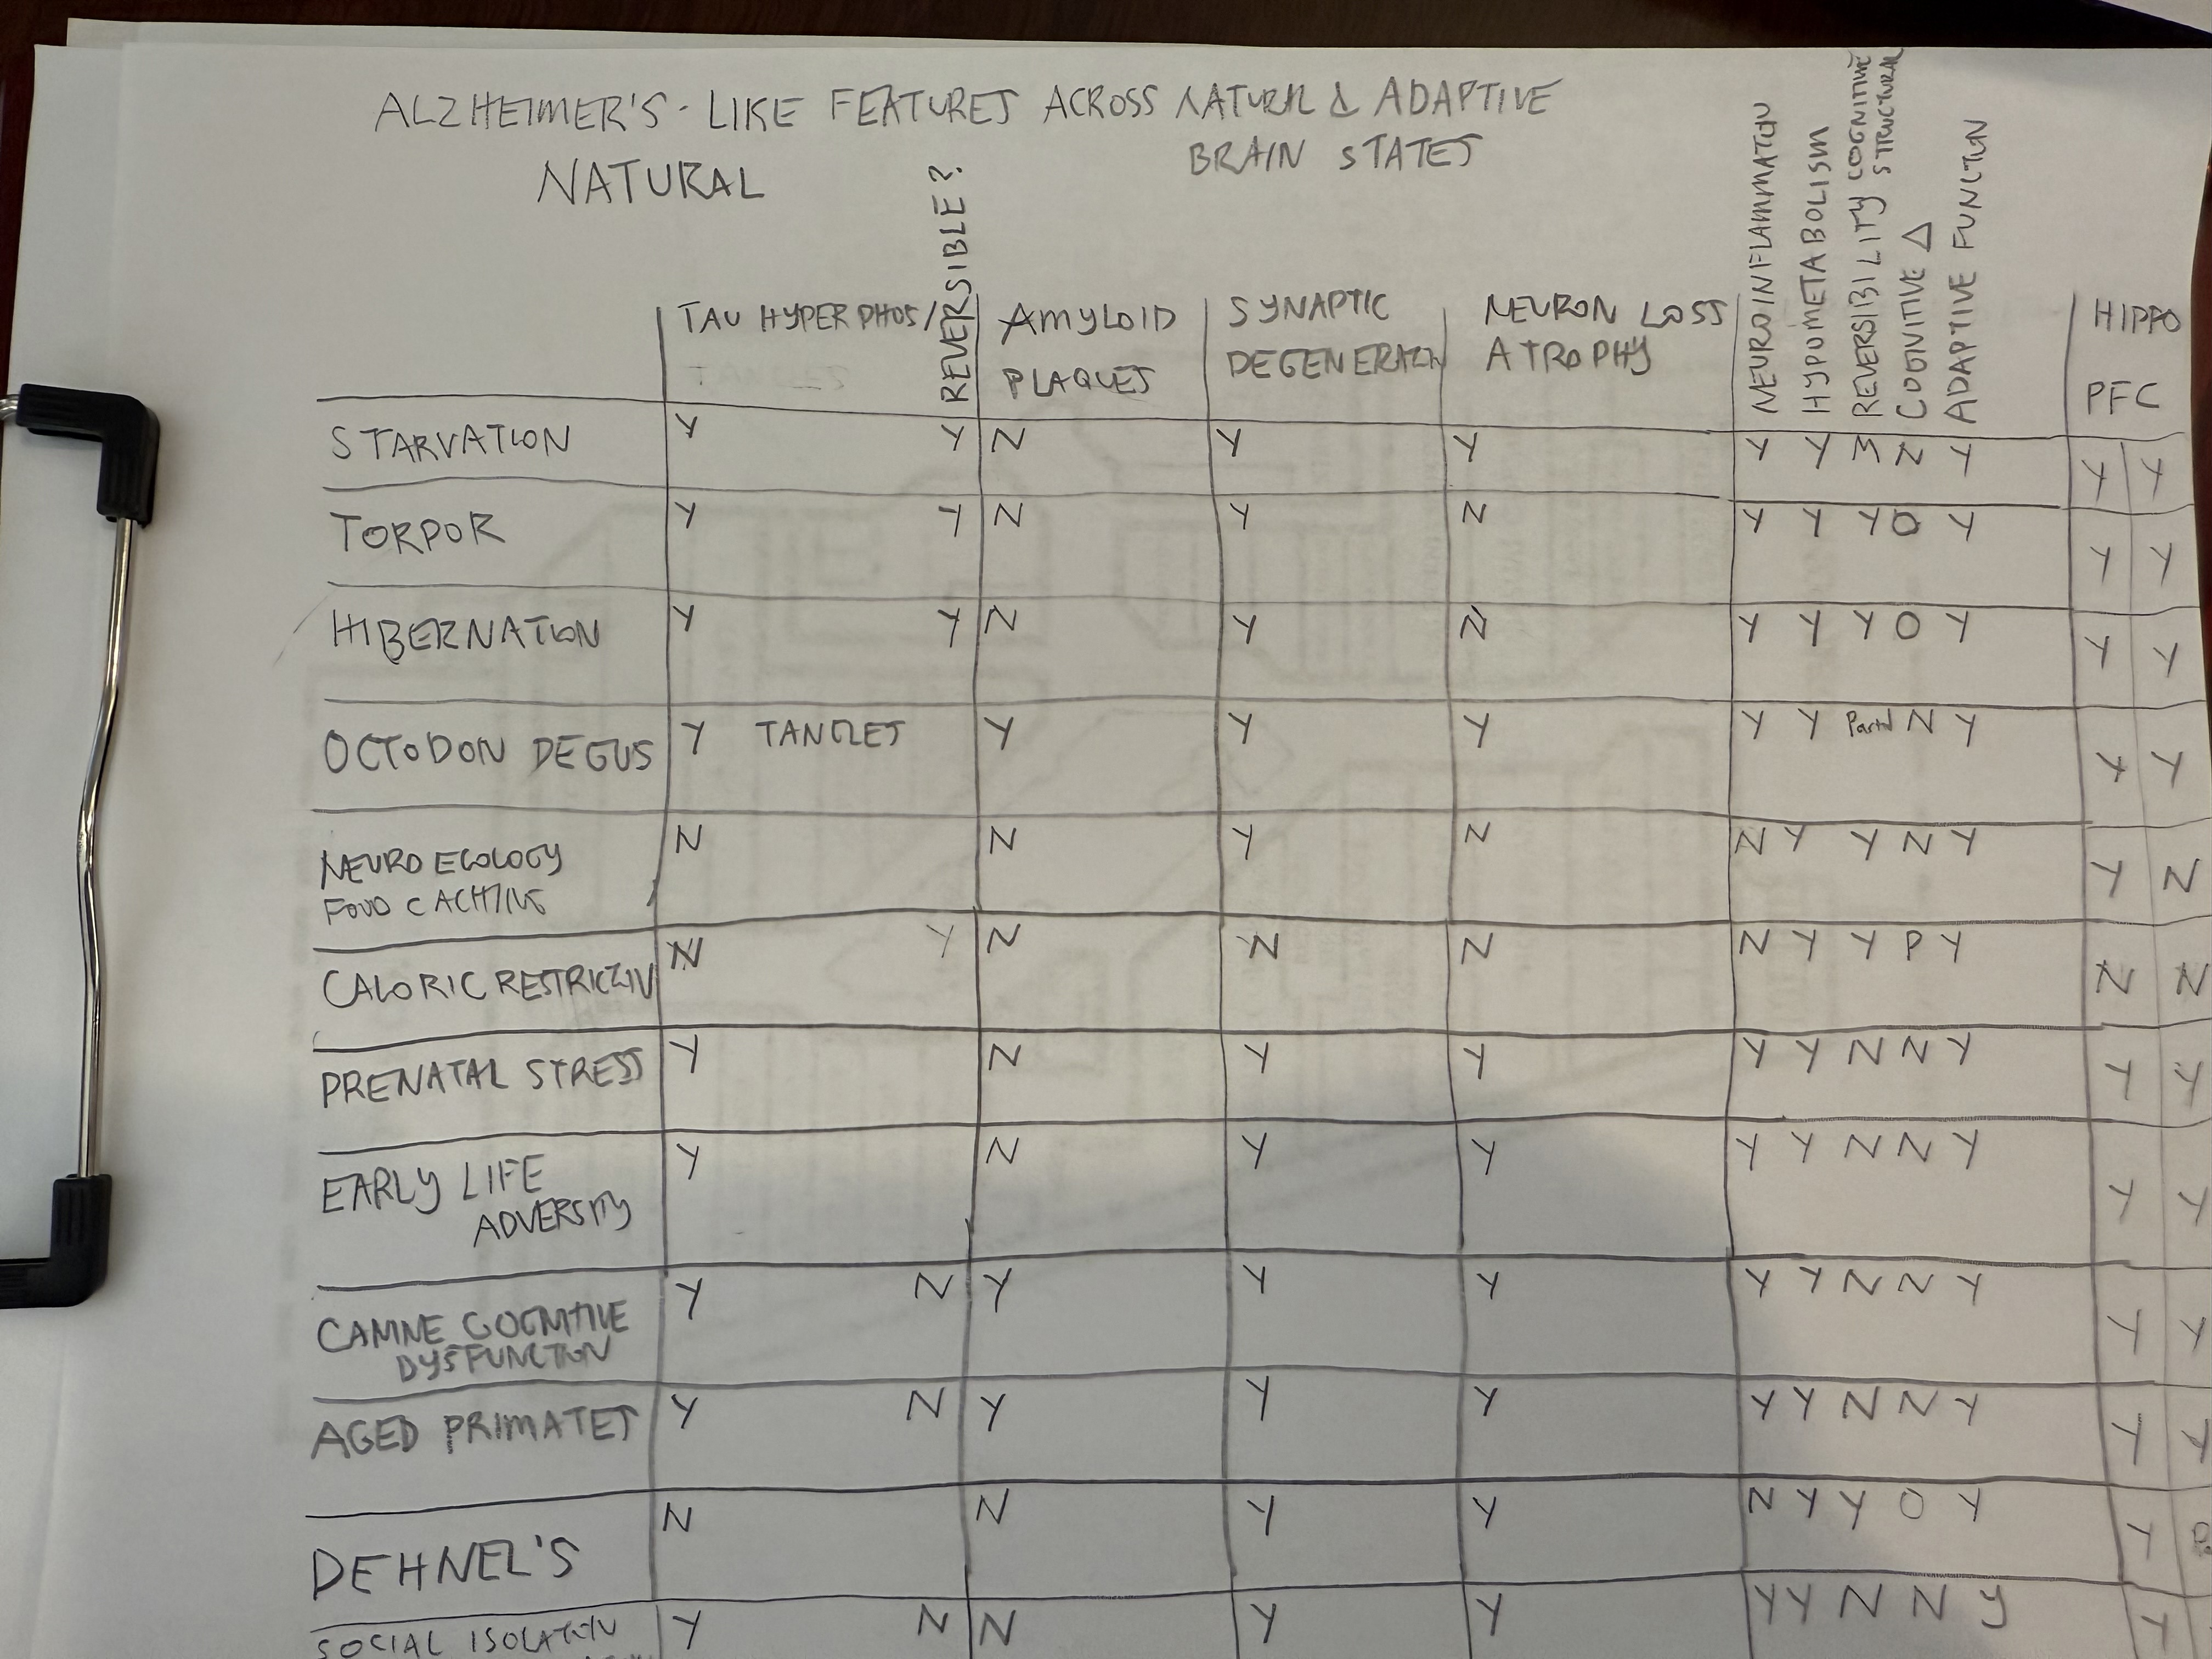 ALZHEIMER'S-LIKE FEATURES ACROSS NATURAL & ADAPTIVE
BRAIN STATES
NATURAL
TAU HYPERPHOS/
REVERSIBLE?
AMYLOID
PLAQUES
SYNAPTIC
DEGENERATN
NEURON LOSS
ATROPHY
NEUROINFLAMMATION
HYPOMETABOLISM
REVERSIBILITY COGNITIVE
STRUCTURAL
COGNITIVE Δ
ADAPTIVE FUNCTION
HIPPO
PFC
STARVATION Y Y N Y Y Y Y M N Y Y Y
TORPOR Y Y N Y N Y Y Y O Y Y Y
HIBERNATION Y Y N Y N Y Y Y O Y Y Y
OCTODON DEGUS Y TANGLES Y Y Y Y Y Partial N Y Y Y
NEUROECOLOGY
FOOD CACHING N N Y N N Y Y N Y Y N
CALORIC RESTRICTION N Y N N N N Y Y P Y N N
PRENATAL STRESS Y N Y Y Y Y N N Y Y Y
EARLY LIFE
ADVERSITY Y N Y Y Y Y N N Y Y Y
CANINE COGNITIVE
DYSFUNCTION Y N Y Y Y Y Y N N Y Y Y
AGED PRIMATES Y N Y Y Y Y Y N N Y Y Y
DEHNEL'S N N Y Y N Y Y O Y Y
SOCIAL ISOLATION Y N N Y Y Y Y N N Y Y